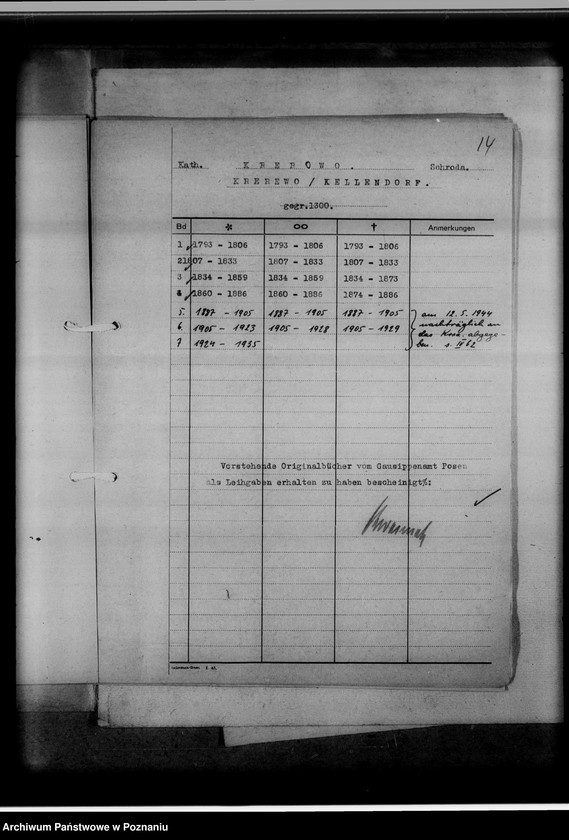 14
Kath. KREROWO. Schroda.
KREREWO / KELLENDORF.
gegr.1300.
Bd * ∞ † Anmerkungen
1 1793 - 1806 1793 - 1806 1793 - 1806
2 1807 - 1833 1807 - 1833 1807 - 1833
3 1834 - 1859 1834 - 1859 1834 - 1873
4 1860 - 1886 1860 - 1886 1874 - 1886
5. 1887 - 1905 1887 - 1905 1887 - 1905 am 12.5.1944
6. 1905 - 1923 1905 - 1928 1905 - 1929 nachträglich an
das abgege-
7 1924 - 1935 ben. s. II 62
Vorstehende Originalbücher vom Gausippenamt Posen
als Leihgaben erhalten zu haben bescheinigt:
Archiwum Państwowe w Poznaniu